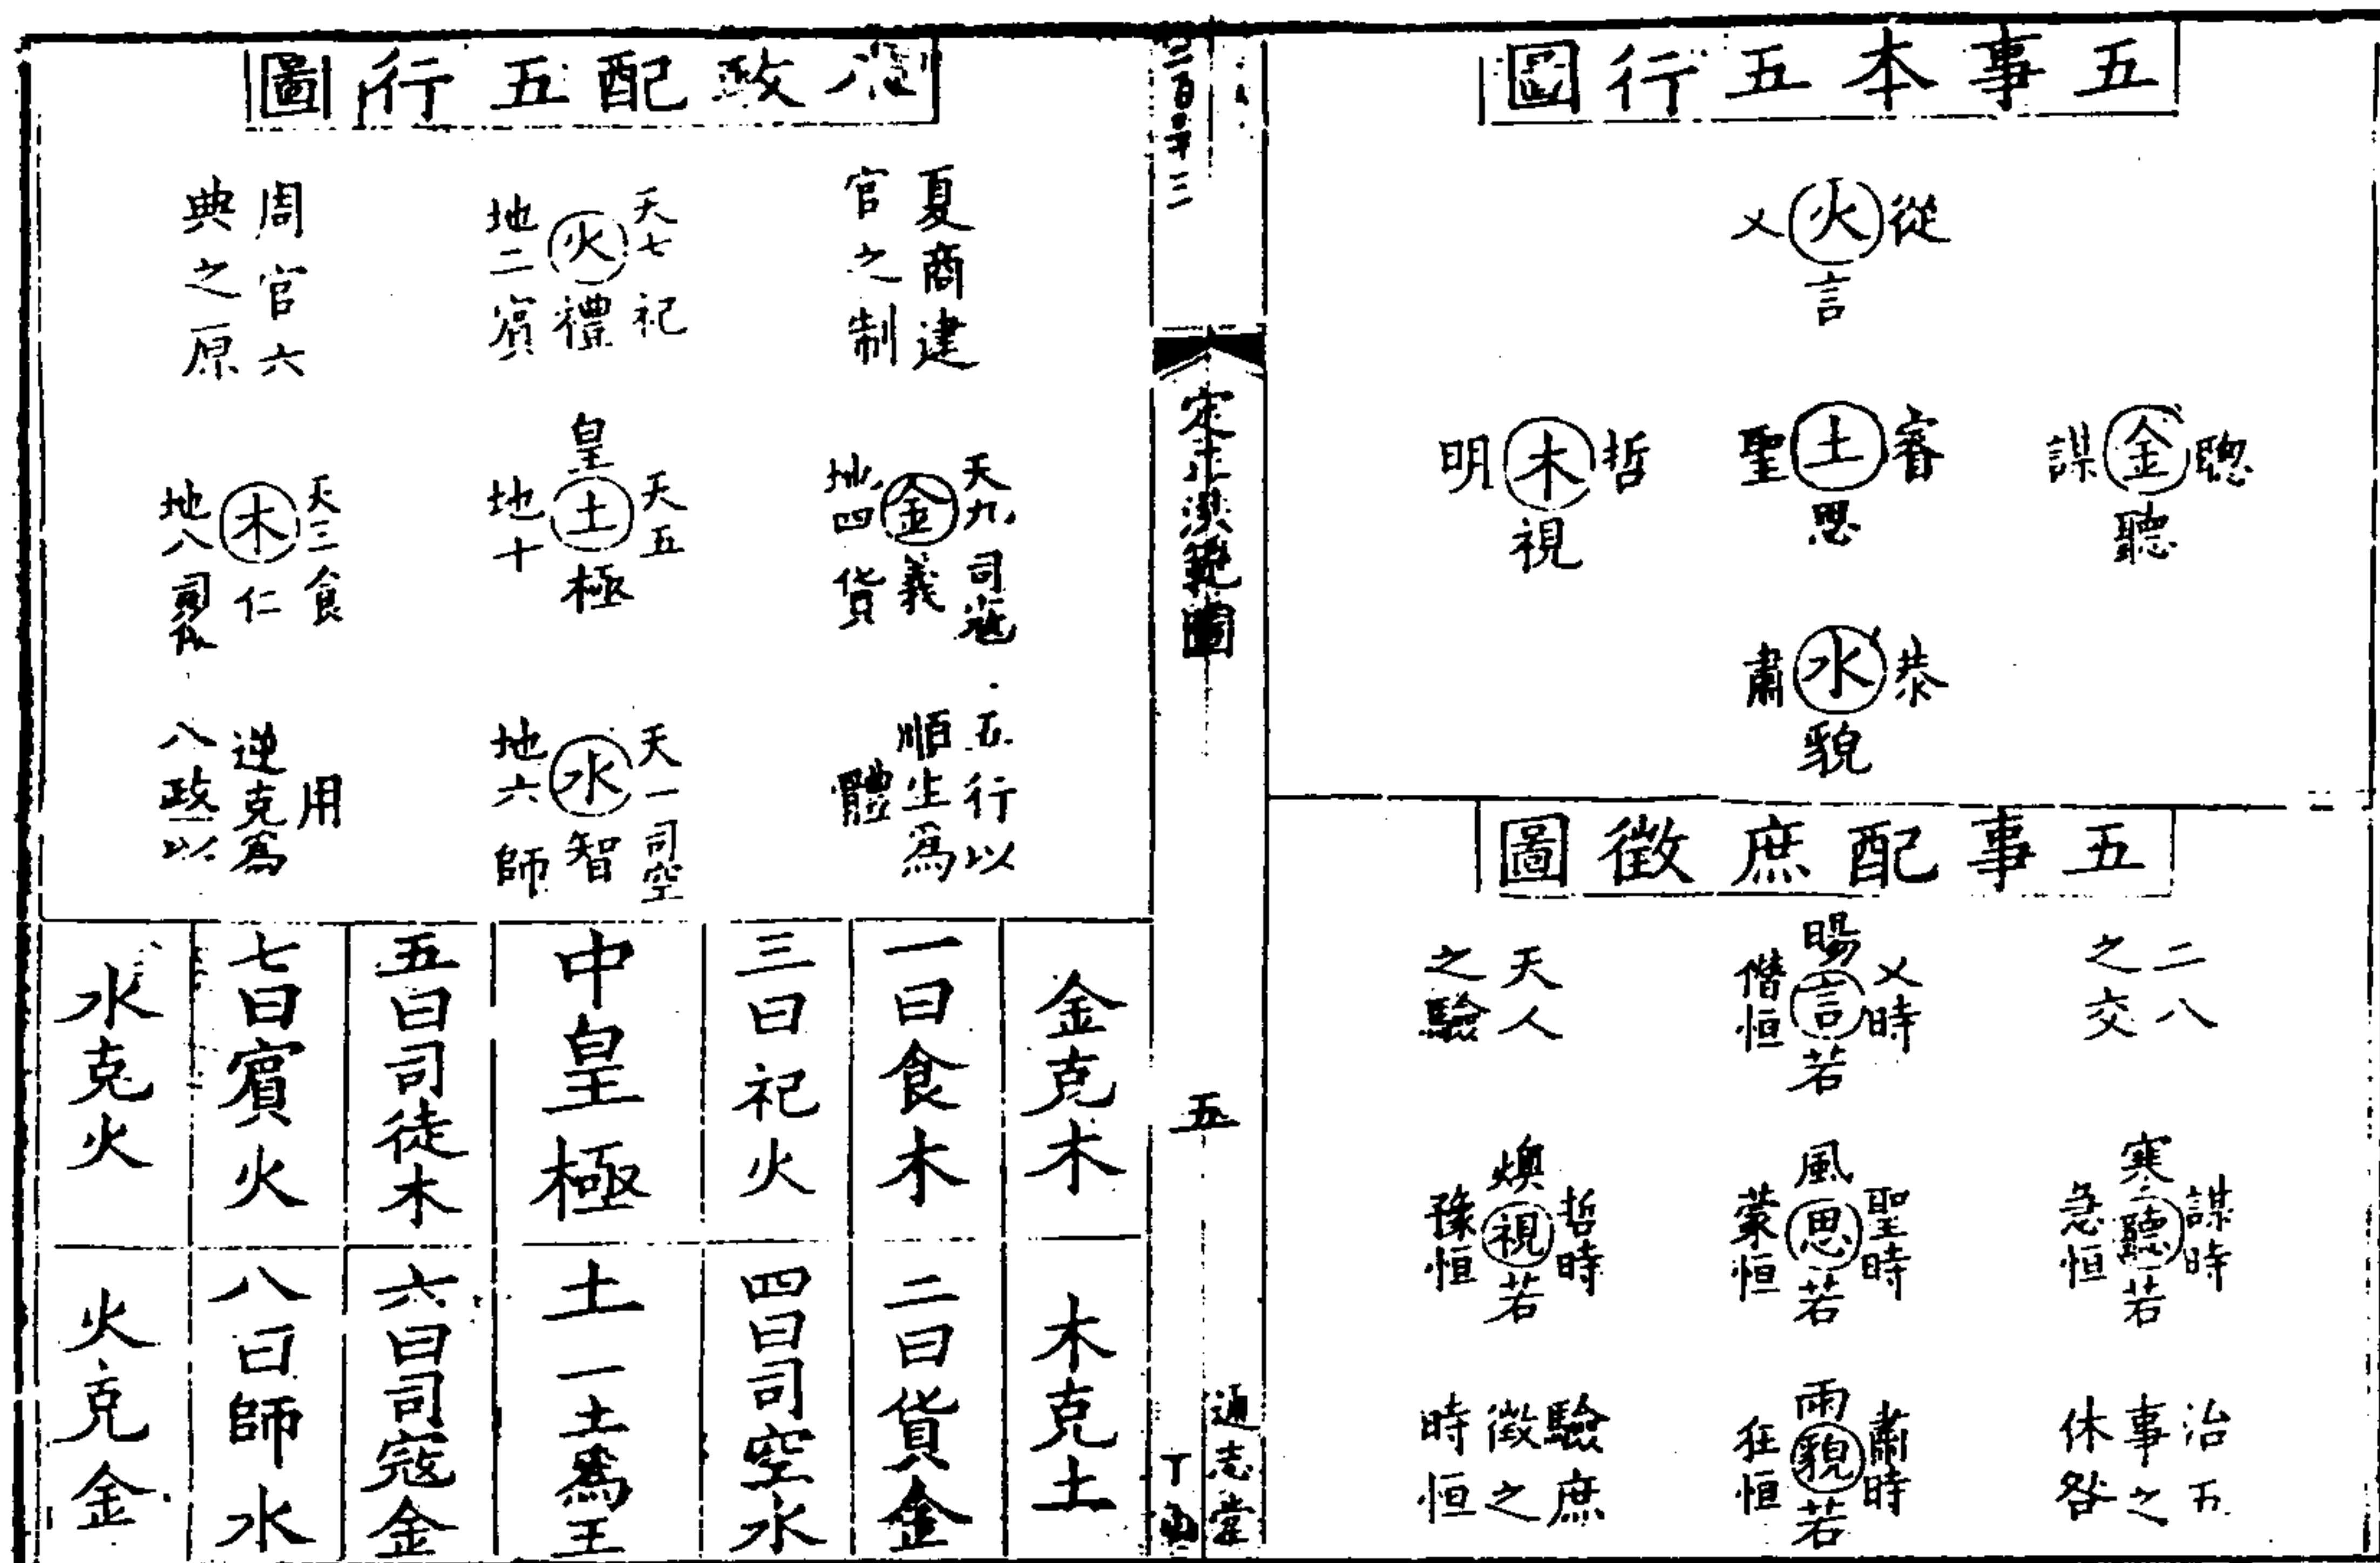 五事本五行圖
從火乂
言
聰金謀
聽
睿土聖
思
哲木明
視
恭水肅
貌
五事配庶徵圖
二八
之交
乂時
暘言若
僭恒
天人
之驗
謀時
寒聽若
急恒
聖時
風思若
蒙恒
哲時
燠視若
豫恒
治五
事之
休咎
肅時
雨貌若
狂恒
驗庶
徵之
時恒
定正洪範圖
五
通志堂
八政配五行圖
夏商建
官之制
天七祀
火禮
地二賓
周官六
典之原
天九司寇
金義
地四貨
天五
皇土極
地十
天三食
木仁
地八司徒
五行以
順生為
體
天一司空
水智
地六師
用
逆克為
八政以
金克木
木克土
一曰食木
二曰貨金
三曰祀火
四曰司空水
中皇極
土一土為王
五曰司徒木
六曰司寇金
七曰賓火
八曰師水
水克火
火克金